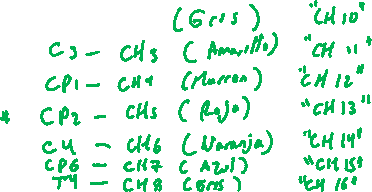 (Gris) "CH 10"
C3 - CH3 (Amarillo) "CH 11"
CP1 - CH4 (Marron) "CH 12"
* CP2 - CH5 (Rojo) "CH 13"
C4 - CH6 (Naranja) "CH 14"
CP6 - CH7 (Azul) "CH 15"
T4 - CH8 (Gris) "CH 16"